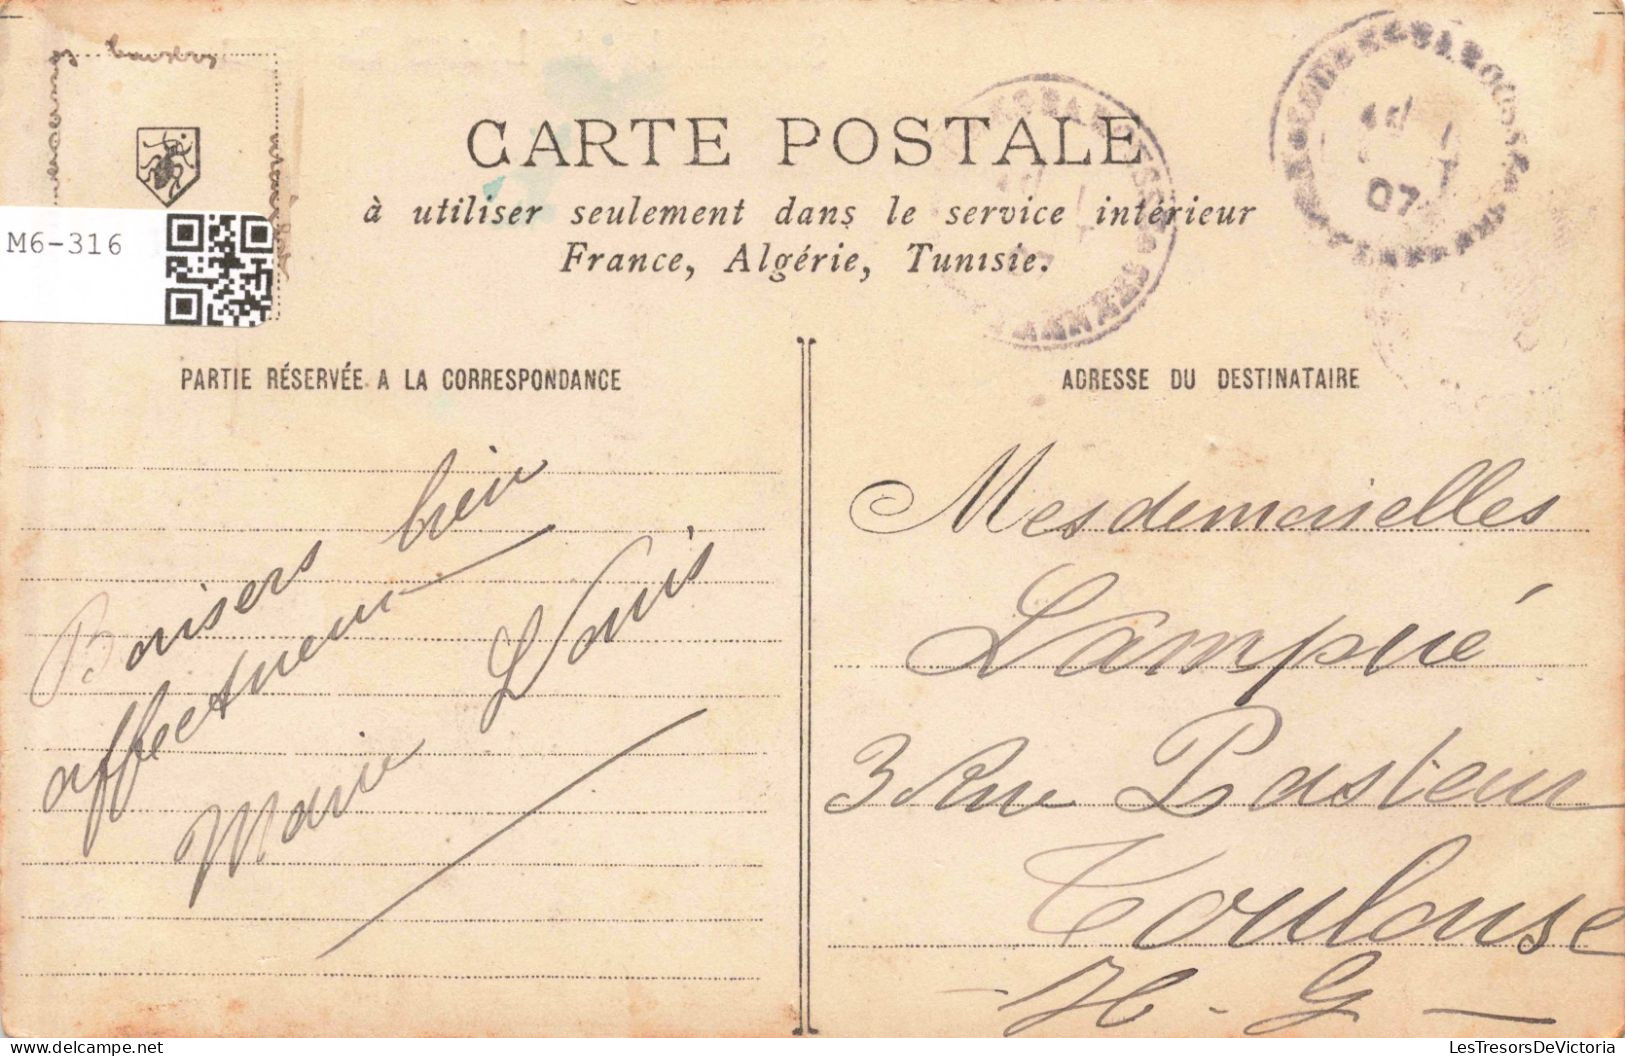 CARTE POSTALE
à utiliser seulement dans le service intérieur
France, Algérie, Tunisie.
M6-316
07
PARTIE RÉSERVÉE A LA CORRESPONDANCE
Baisers bien
affectueux
Marie Louis
ADRESSE DU DESTINATAIRE
Mesdemoiselles
Lampué
3 Rue Pasteur
Toulouse
- H - G -
LesTresorsDeVictoria